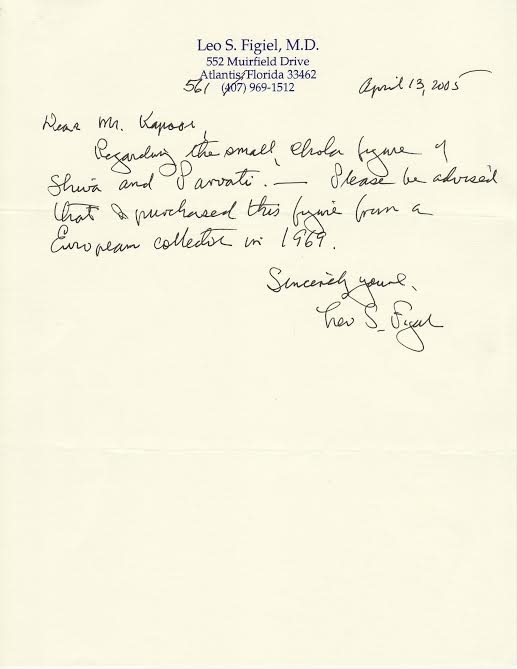 Leo S. Figiel, M.D.
552 Muirfield Drive
Atlantis/Florida 33462
561 (407) 969-1512
April 13, 2005
Dear Mr. Kapoor,
Regarding the small, Chola figure of
Shiva and Parvati. — Please be advised
that I purchased this figure from a
European collector in 1969.
Sincerely yours,
Leo S. Figiel